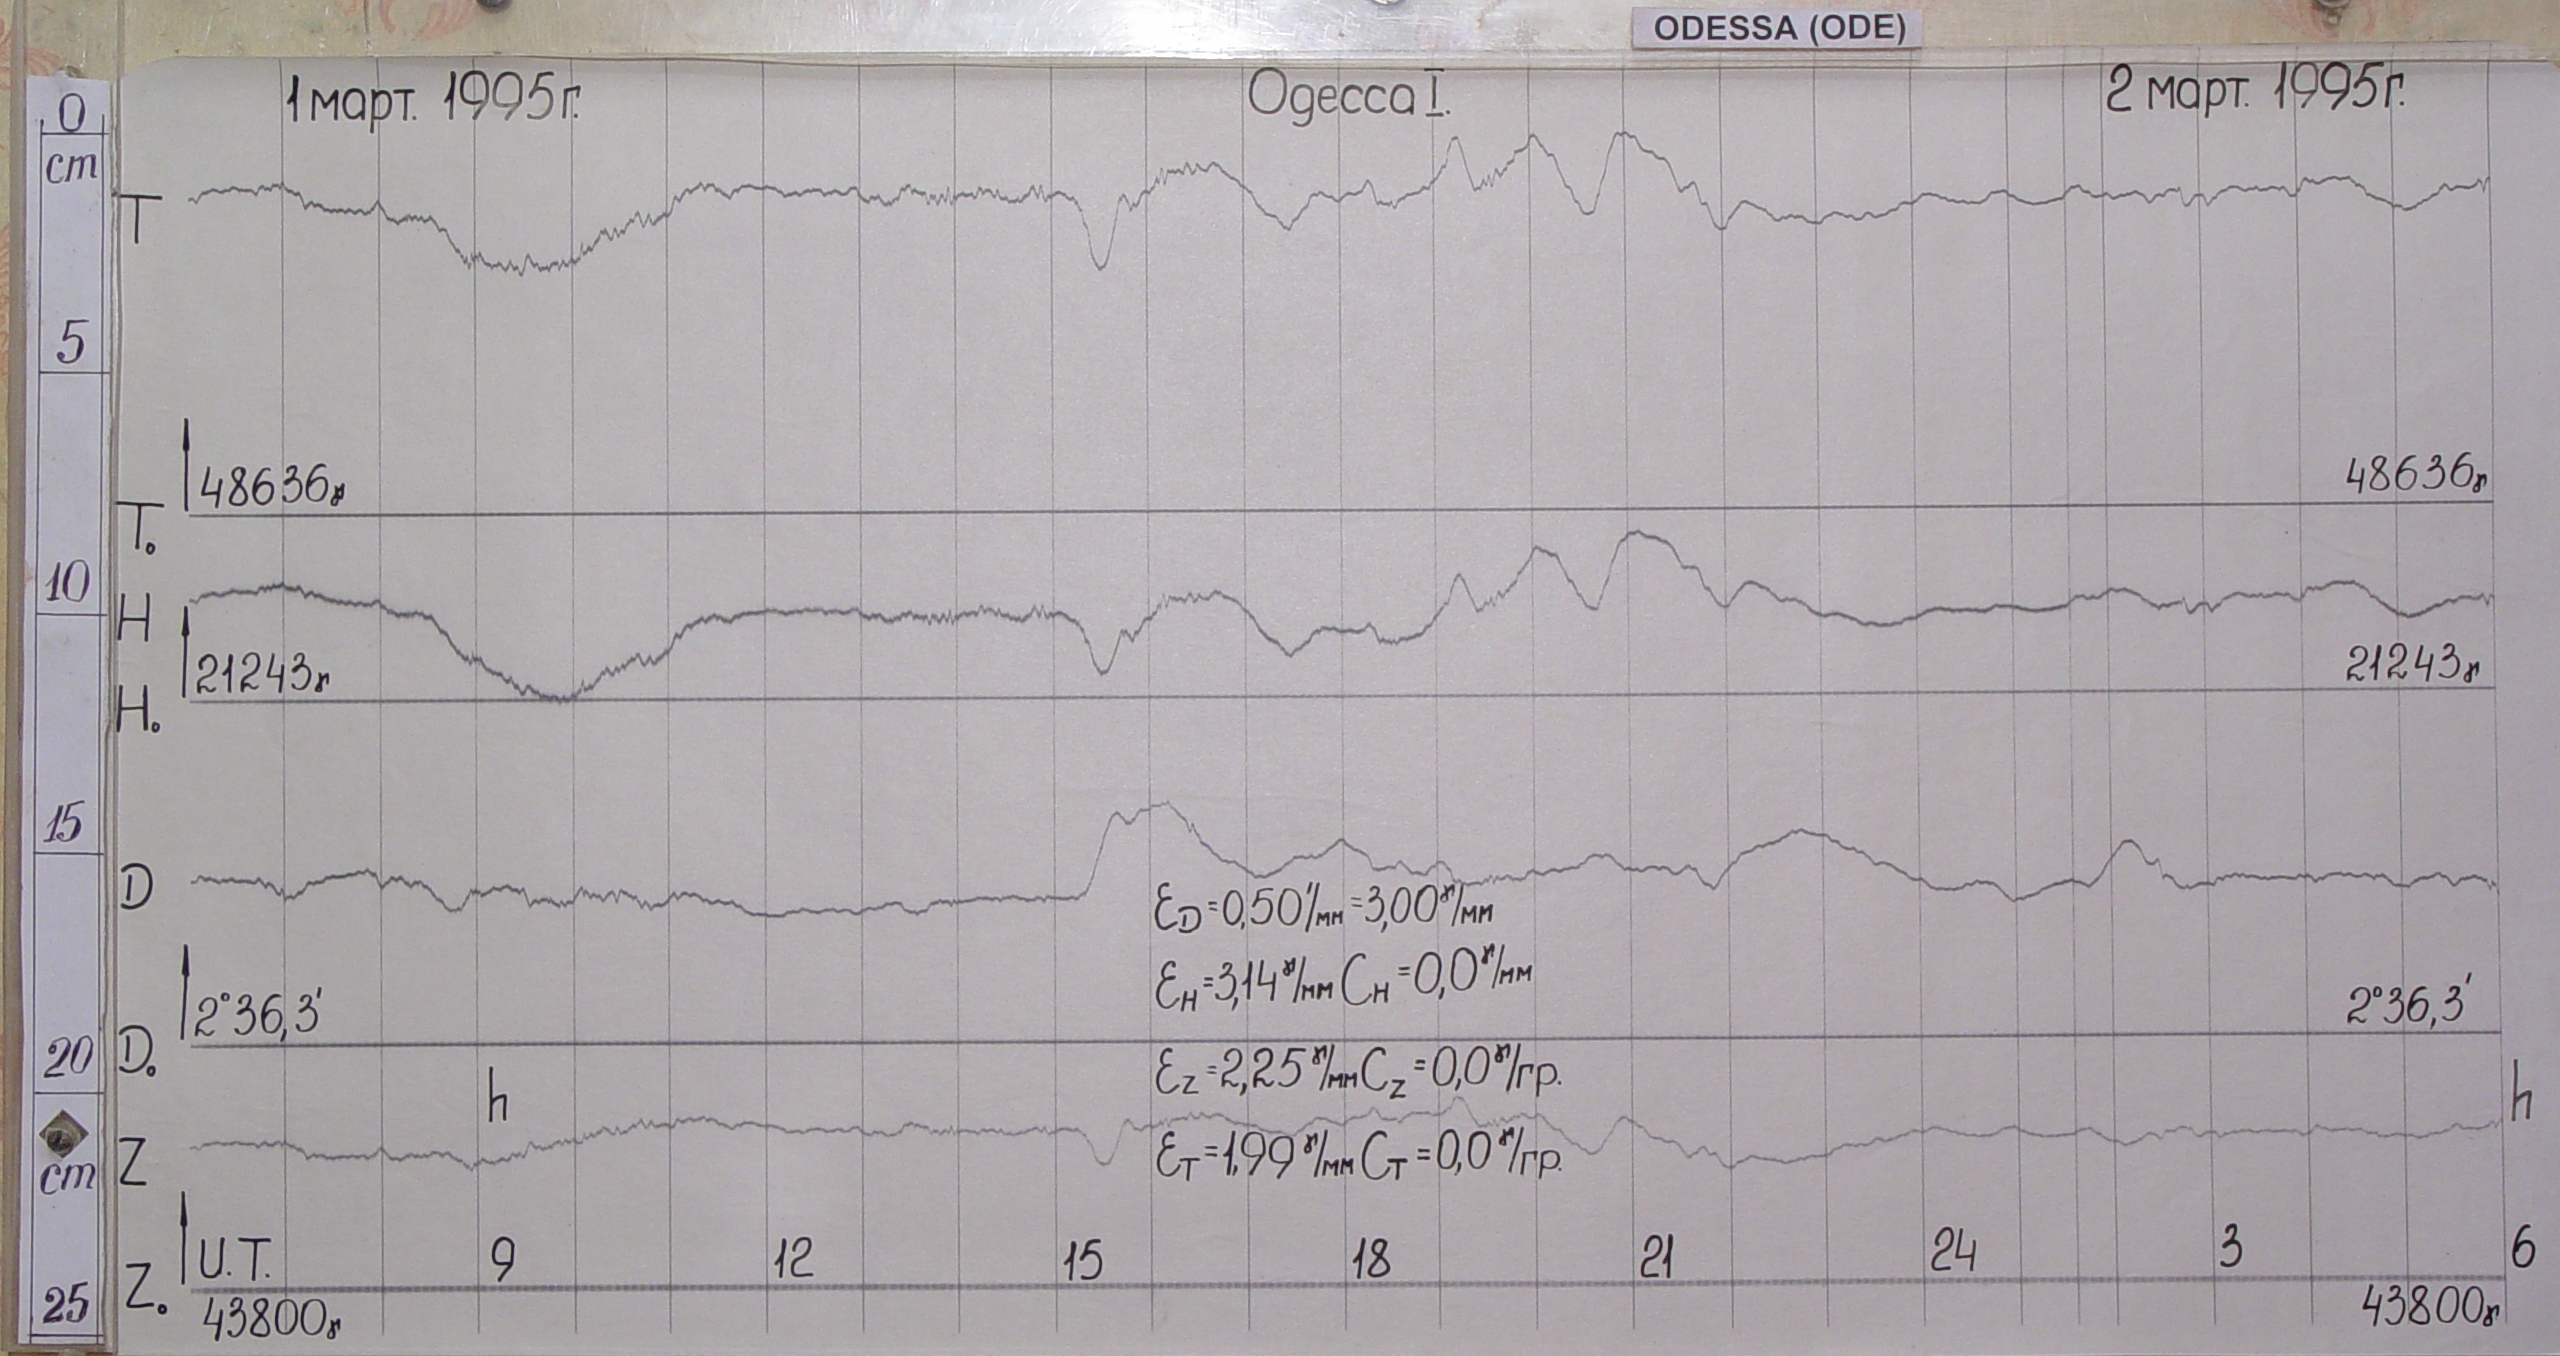 ODESSA (ODE)
1 март. 1995г. Одесса I. 2 март. 1995г.
0
cm
T
5
48636γ 48636γ
T₀
10
H
21243γ 21243γ
H₀
15
D
Ɛ_D=0,50'/мм=3,00γ/мм
Ɛ_H=3,14γ/мм C_H=0,0γ/мм
2°36,3' 2°36,3'
D₀
20
Ɛ_Z=2,25γ/мм C_Z=0,0γ/гр.
h h
Z
Ɛ_T=1,99γ/мм C_T=0,0γ/гр.
cm
U.T. 9 12 15 18 21 24 3 6
Z₀
25
43800γ 43800γ